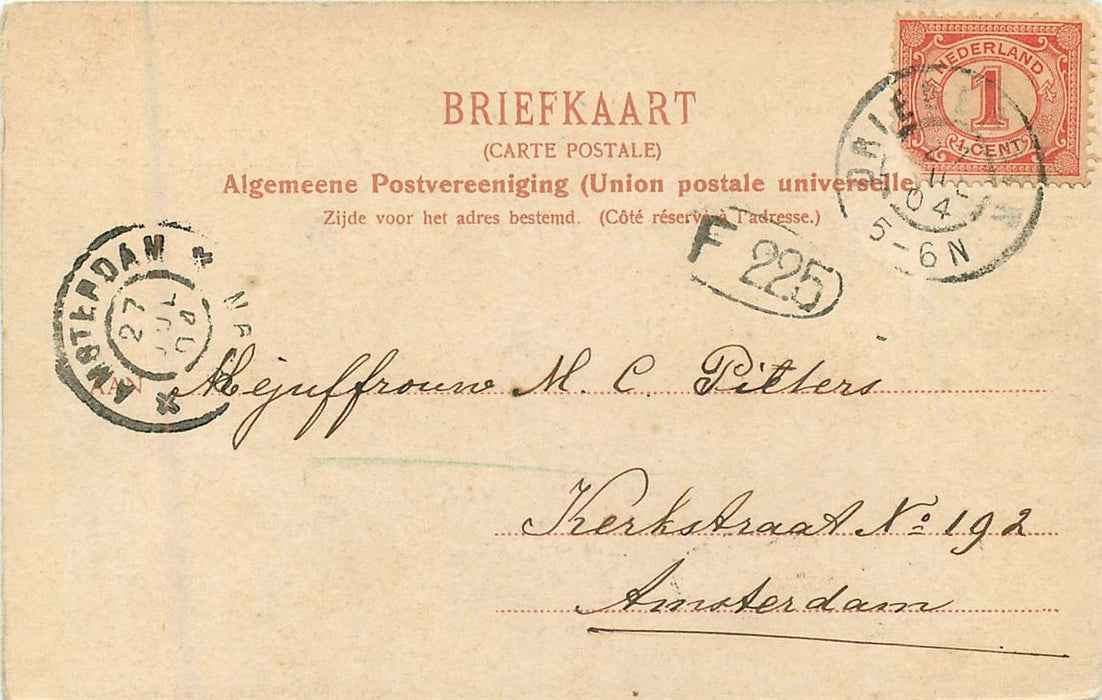 NEDERLAND
1
CENT
BRIEFKAART
(CARTE POSTALE)
Algemeene Postvereeniging (Union postale universelle
Zijde voor het adres bestemd. (Côté réservé à l'adresse.)
04
5-6N
F 225
AMSTERDAM
27 JUL 04
AAN Mejuffrouw M. C. Pitters
Kerkstraat No 192
Amsterdam